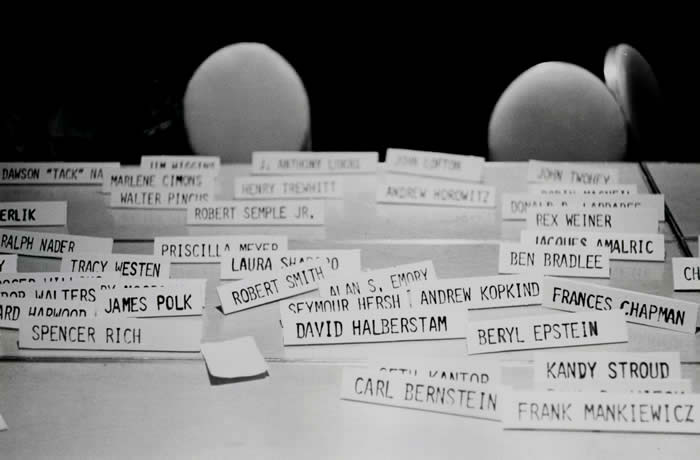 J. ANTHONY LUKAS
JOHN LOFTON
DAWSON "TACK" NA
JIM HIGGINS
MARLENE CIMONS
WALTER PINCUS
HENRY TREWHITT
ANDREW HOROWITZ
JOHN TWOHEY
ROBIN
DONALD
REX WEINER
ERLIK
ROBERT SEMPLE JR.
RALPH NADER
PRISCILLA MEYER
JACQUES AMALRIC
BEN BRADLEE
TRACY WESTEN
LAURA SHAPIRO
CH
ROBERT SMITH
ALAN S. EMORY
SEYMOUR HERSH
ANDREW KOPKIND
FRANCES CHAPMAN
WALTERS
JAMES POLK
ARD HARWOOD
SPENCER RICH
DAVID HALBERSTAM
BERYL EPSTEIN
SETH KANTOR
KANDY STROUD
CARL BERNSTEIN
FRANK MANKIEWICZ